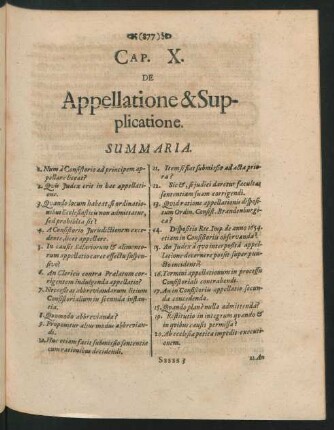 (877)
CAP. X.
DE
Appellatione & Sup-
plicatione.
SUMMARIA.
1. Num à Consistorio ad principem ap-
pellare liceat?
2. Quis Judex erit in hac appellati-
one.
3. Quando locum habeat, si ordinatio-
nibus Ecclesiasticis non admittatur,
sed prohibita sit?
4. A Consistorio Jurisdictionem ex-
cedente, licet appellare.
5. In causis salariorum & alimento-
rum appellatio caret effectu suspen-
sivo?
6. An Clericis contra Prælatum cor-
rigentem indulgenda appellatio?
7. Necessitas abbreviandarum litium
Consistorialium in secunda instan-
tia.
8. Quomodo abbrevianda?
9. Proponitur alius modus abbrevian-
di.
10. Huc etiam facit submissio sententiæ
cum rationibus decidendi.
11. Item si fiat submissio ad acta prio-
ra?
12. Sic &, si judici daretur facultas
sententiam suam corrigendi.
13. Quid ratione appellationis disposi-
tum Ordin. Consist. Brandenburgi-
ca?
14. Dispositio Rec. Imp. de anno 1654.
etiam in Consistorio observanda?
15. An Judex à quo interposita appel-
latione decernere possit super pun-
cto incidenti?
16. Termini appellationum in processu
Consistoriali contrahendi.
17. An in Consistoriis appellatio secun-
da concedenda.
18. Quando planè nulla admittenda?
19. Restitutio in integrum quando &
in quibus causis permissa?
20. Ab ecclesia petita impedit executi-
onem.
Sssss 3
21. An